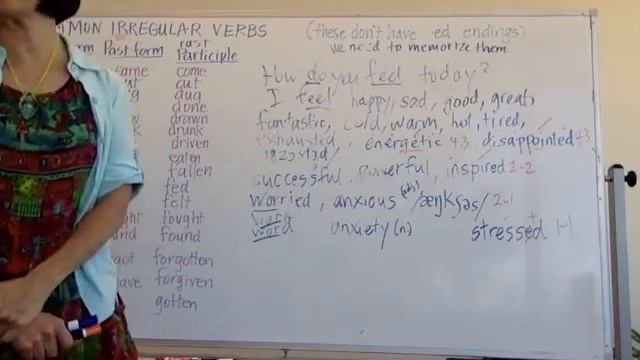 MMON IRREGULAR VERBS (these don't have ed endings)
rm Past form Past Participle we need to memorize them.
came come
cut
dug
done
drawn
drunk
driven
eaten
fallen
fed
felt
fought
found
got forgotten
gave forgiven
gotten
How do you feel today?
I feel happy, sad, good, great,
fantastic, cold, warm, hot, tired,
exhausted, energetic 4-3, disappointed 4-3
successful powerful, inspired 2-2
worried, anxious (adj) /æŋkʃəs/ 2-1
word anxiety (n) stressed 1-1